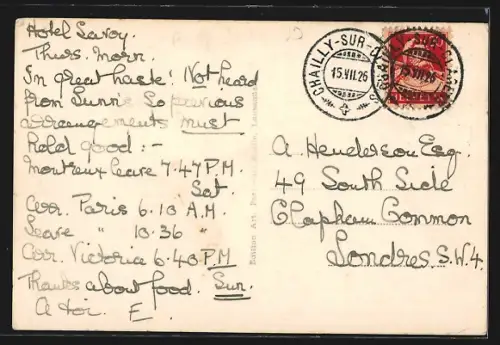 Hotel Savoy.
Thurs. Morn.
In great haste! Not heard
from Lunn's So previous
arrangements must
hold good :-
Montreux leave 7.47 P.M.
Sat.
Arr. Paris 6.10 A.M.
Leave " 10.36 "
Arr. Victoria 6.40 P.M
Sun.
Thanks about food.
E.
CHAILLY-SUR-
15.VII.26
CHAILLY-SUR-CLARENS
15.VII.26
A Henderson Esq.
49 South Side
Clapham Common
Londres. S.W.4.